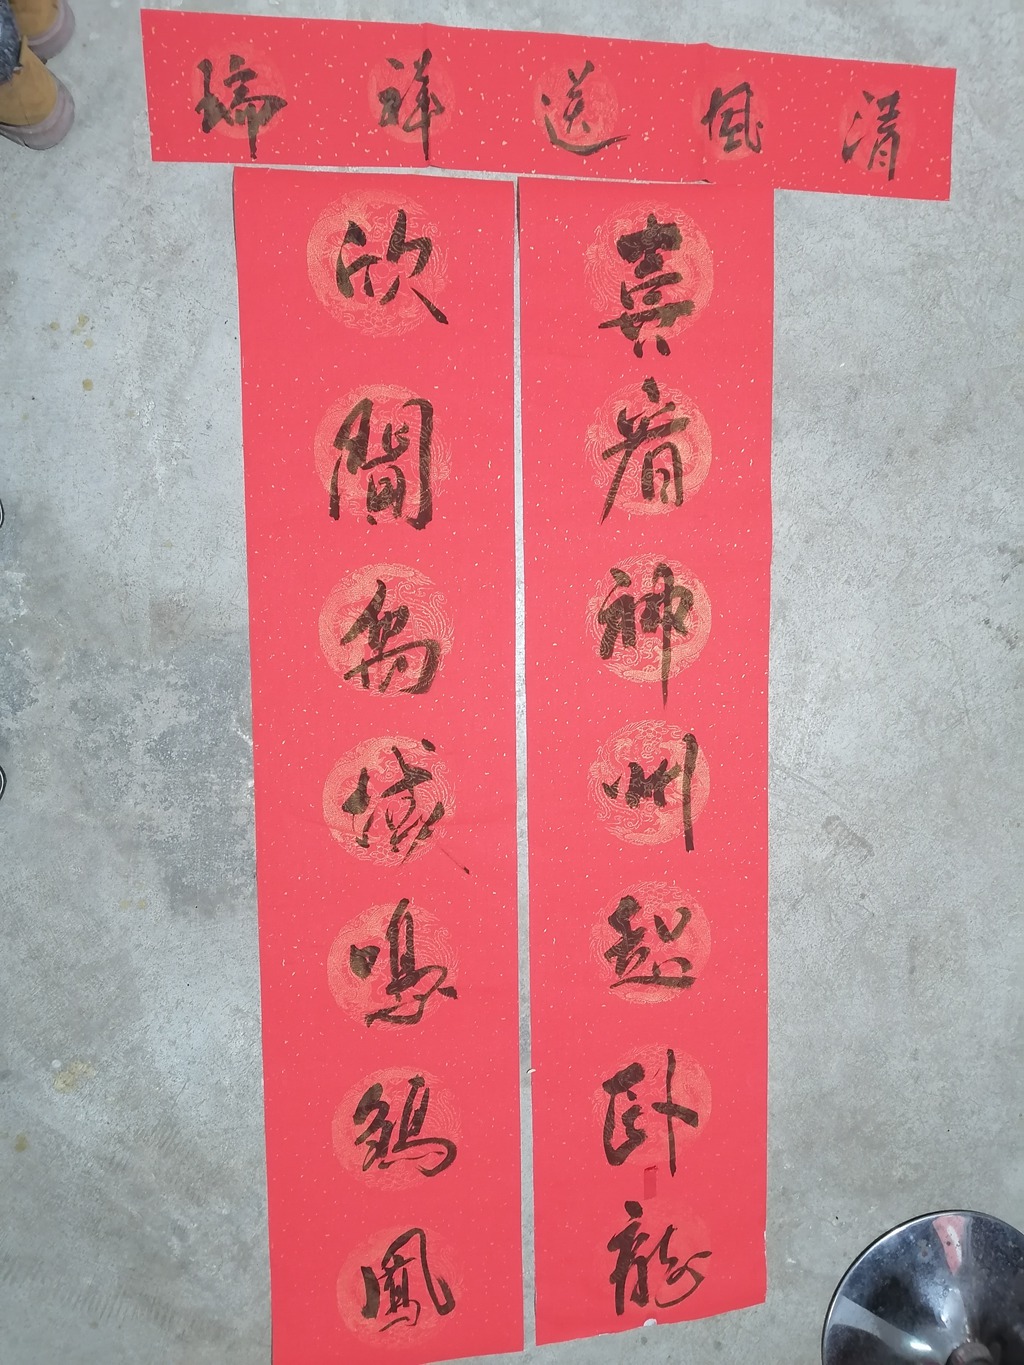 清風送祥瑞
喜看神州起臥龍
欣聞禹域鳴鵷鳳